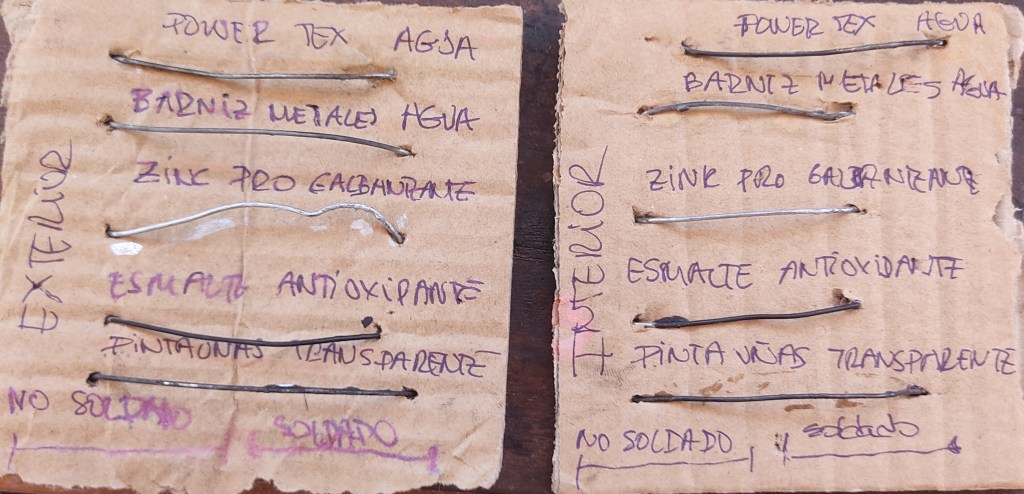 POWER TEX AGUA
BARNIZ METALES AGUA
ZINC PRO GALBANIZANTE
ESMALTE ANTIOXIDANTE
PINTAUÑAS TRANSPARENTE
NO SOLDADO
SOLDADO
EXTERIOR
POWER TEX AGUA
BARNIZ METALES AGUA
ZINK PRO GALBANIZANTE
ESMALTE ANTIOXIDANTE
PINTA UÑAS TRANSPARENTE
NO SOLDADO
soldado
INTERIOR